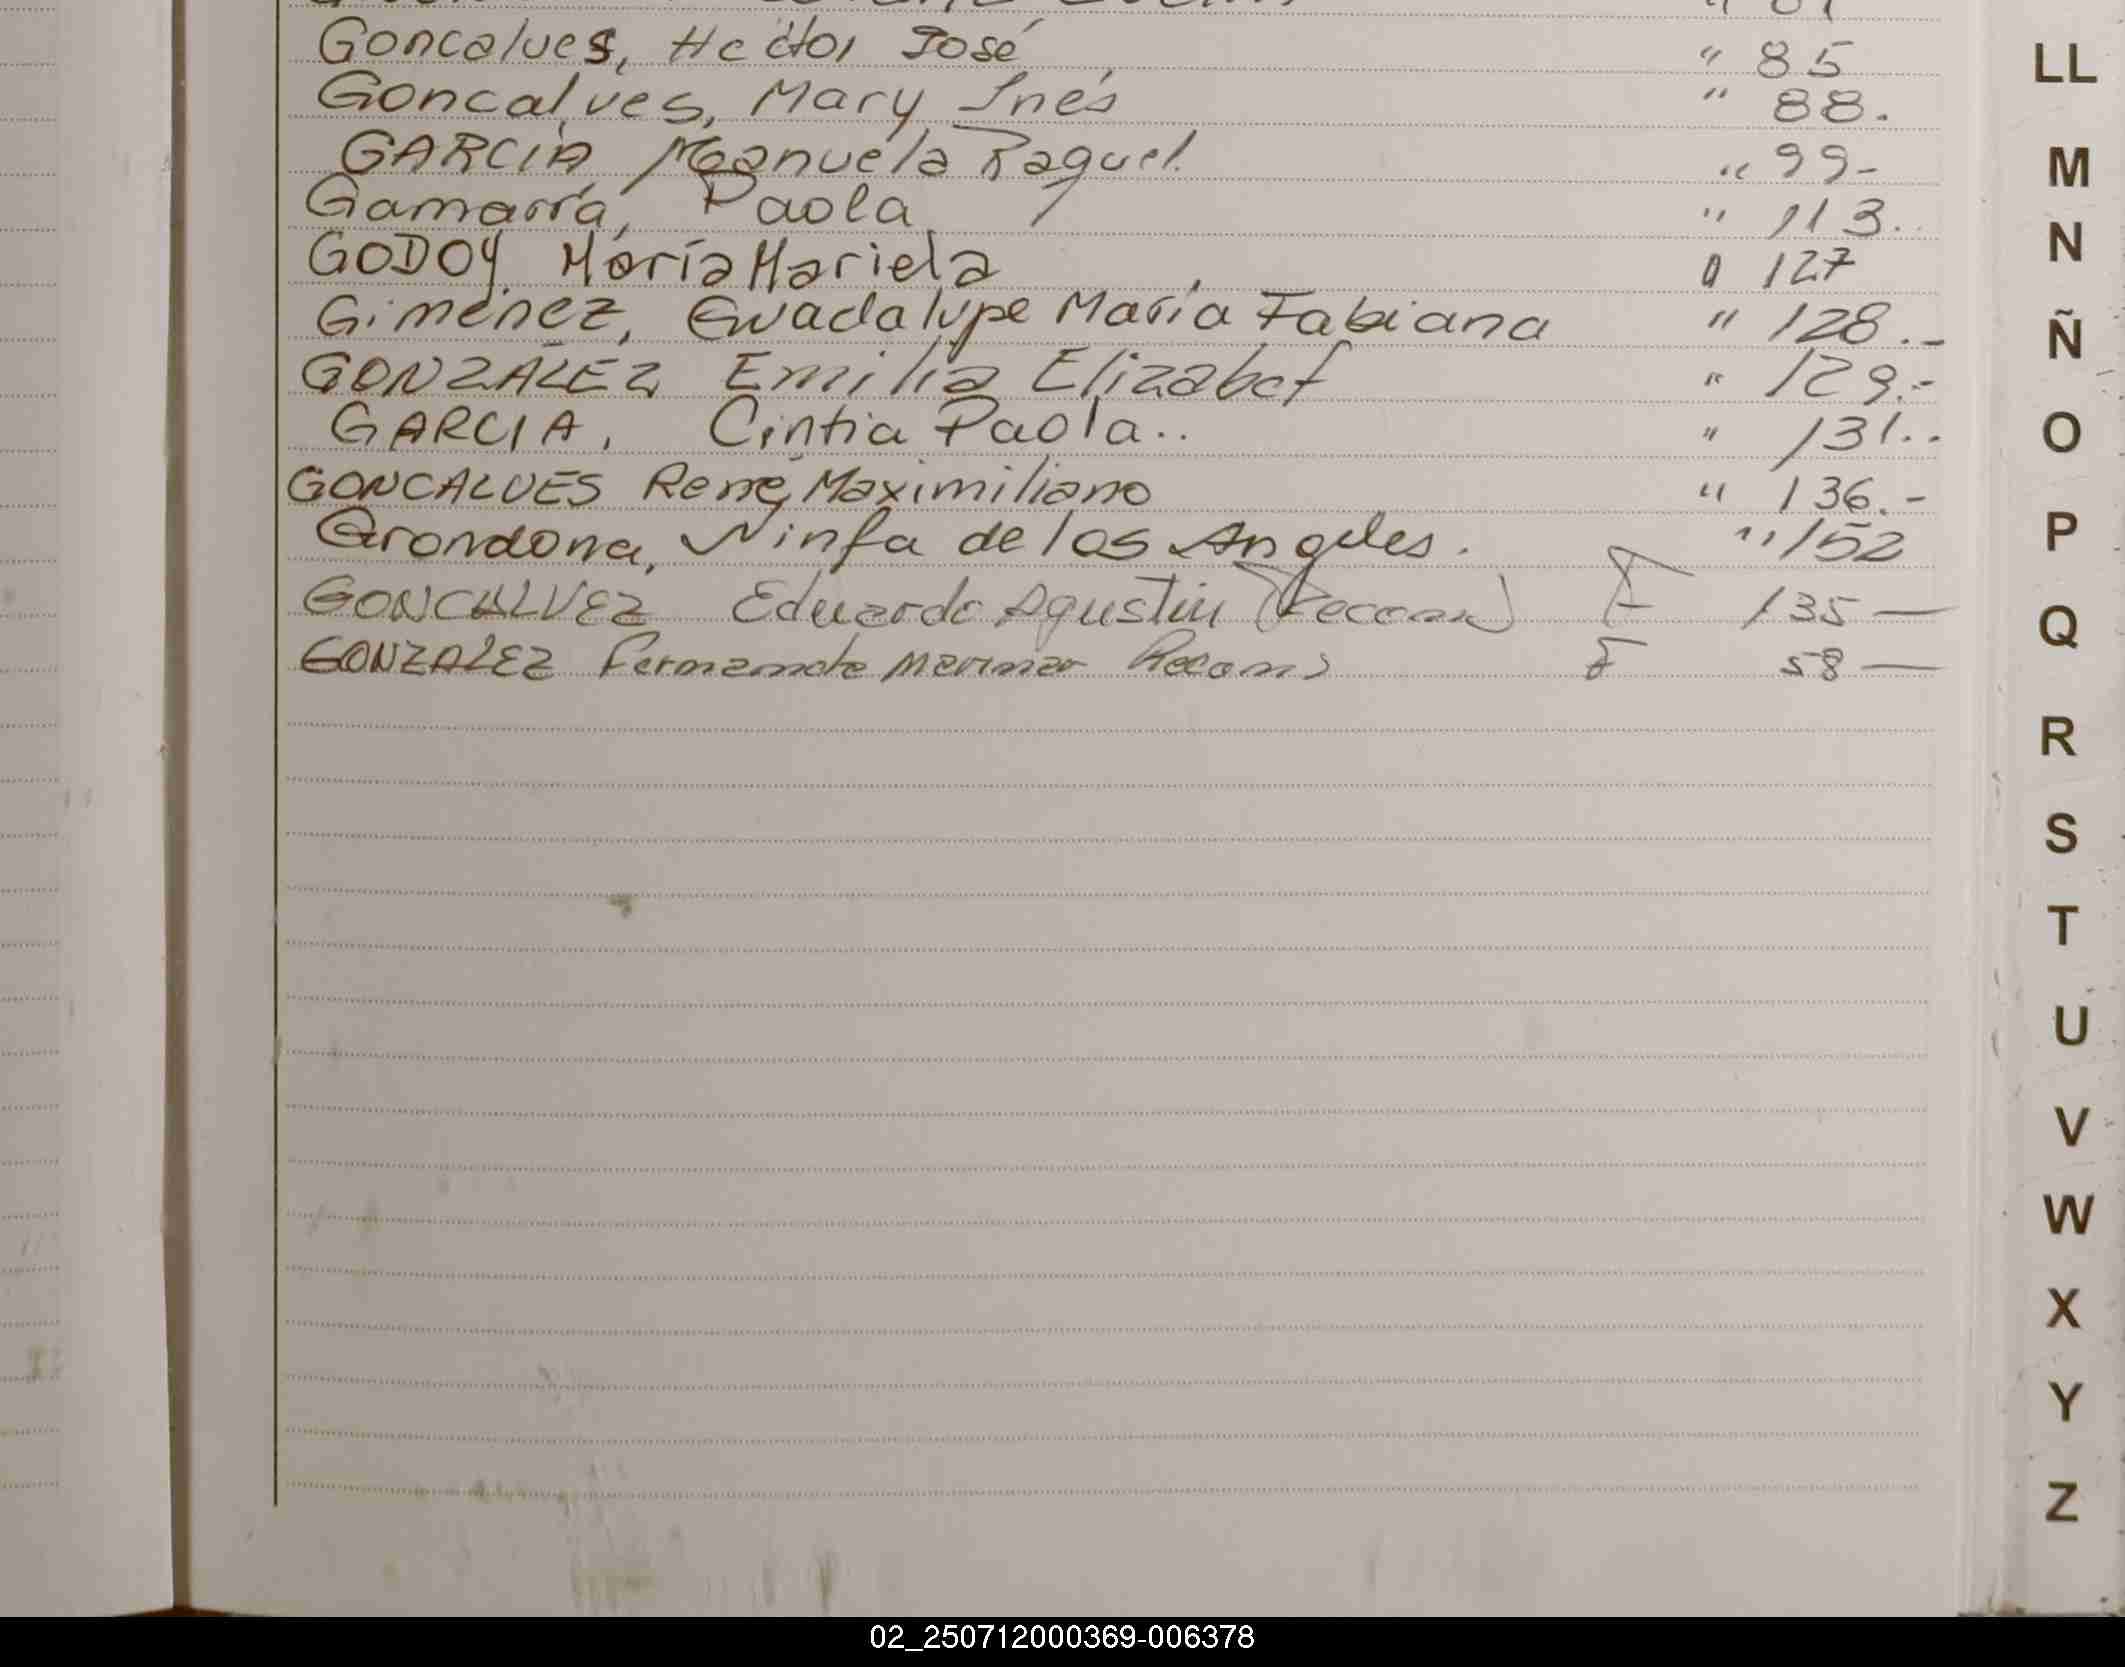 Goncalves, Hector José " 85
Goncalves, Mary Inés " 88.
GARCIA, Manuela Raquel. " 99-
Gamarra, Paola " 113..
GODOY, María Mariela " 127
Gimenez, Guadalupe María Fabiana " 128.-
GONZÁLEZ Emilia Elizabet " 129.-
GARCIA, Cintia Paola.. " 131..
GONCALVES René, Maximiliano " 136.-
Grondona, Ninfa de los Angeles. " 152
GONCALVEZ Eduardo Agustin 135—
GONZALEZ 58—
LL
M
N
Ñ
O
P
Q
R
S
T
U
V
W
X
Y
Z
02_250712000369-006378